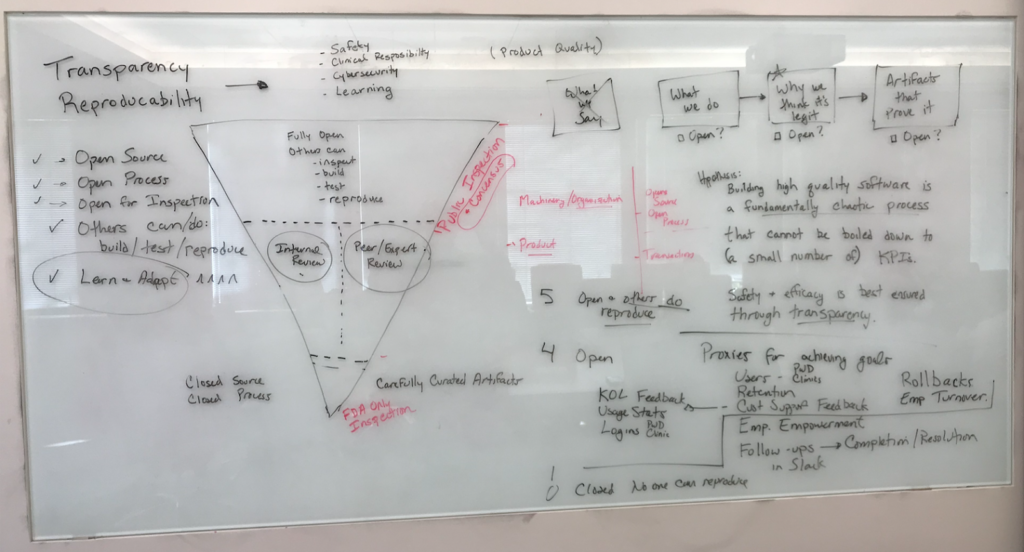 Transparency
Reproducability
- Safety
- Clinical Resposibilty
- Cybersecurity
- Learning
(Product Quality)
What
we
Say
What
we do
□ Open?
Why we
think it's
legit
□ Open?
Artifacts
that
prove it
□ Open?
✓ → Open Source
✓ → Open Process
✓ → Open for Inspection
✓ Others can/do:
build/test/reproduce
✓ Learn + Adapt
Fully Open
Others can
- inspect
- build
- test
- reproduce
Internal
Review
Peer/Expert
Review
Public Inspection
• Consensus
Closed Source
Closed Process
Carefully Curated Artifacts
FDA Only
Inspection
Machinery/Organization
→ Product
Open
Source
Open
Process
Transactions
Hypothesis:
Building high quality software is
a fundamentally chaotic process
that cannot be boiled down to
(a small number of) KPIs.
Safety + efficacy is best ensured
through transparency.
5 Open + others do
reproduce
4 Open
KOL Feedback
Usage Stats
Logins PWD
Clinic
1
0 Closed No one can reproduce
Proxies for achieving goals
Users - PWD
Clinics
Retention
- Cust Support Feedback
Rollbacks
Emp Turnover
Emp. Empowerment
Follow-ups → Completion/Resolution
in Slack